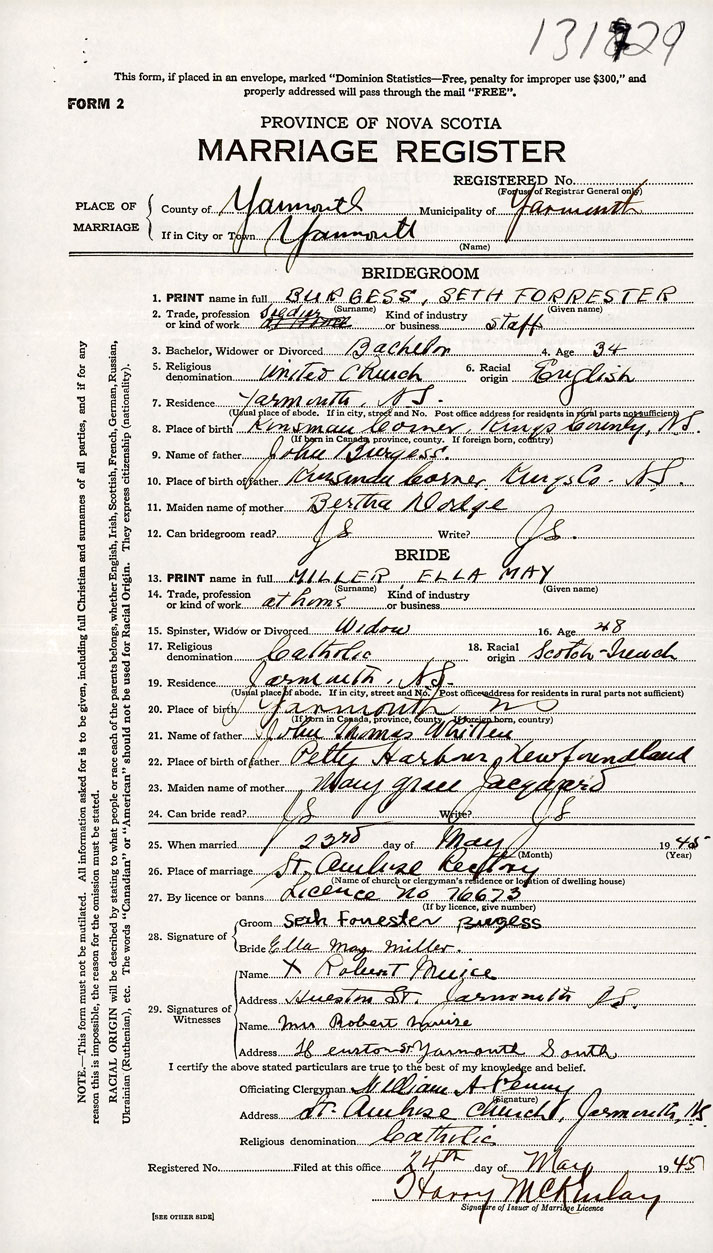 131829
This form, if placed in an envelope, marked "Dominion Statistics—Free, penalty for improper use $300," and
properly addressed will pass through the mail "FREE".
FORM 2
PROVINCE OF NOVA SCOTIA
MARRIAGE REGISTER
REGISTERED No.
(For use of Registrar General only)
PLACE OF MARRIAGE
County of Yarmouth Municipality of Yarmouth
If in City or Town Yarmouth
(Name)
BRIDEGROOM
1. PRINT name in full BURGESS, SETH FORRESTER
(Surname) (Given name)
2. Trade, profession or kind of work Soldier Kind of industry or business Staff
3. Bachelor, Widower or Divorced Bachelor 4. Age 34
5. Religious denomination United Church 6. Racial origin English
7. Residence Yarmouth, N.S.
(Usual place of abode. If in city, street and No. Post office address for residents in rural parts not sufficient)
8. Place of birth Kinsman Corner, Kings County, N.S.
(If born in Canada, province, county. If foreign born, country)
9. Name of father John Burgess.
10. Place of birth of father Kinsman Corner, Kings Co. N.S.
11. Maiden name of mother Bertha Dodge
12. Can bridegroom read? Write?
BRIDE
13. PRINT name in full MILLER, ELLA MAY
(Surname) (Given name)
14. Trade, profession or kind of work at home Kind of industry or business
15. Spinster, Widow or Divorced Widow 16. Age 48
17. Religious denomination Catholic 18. Racial origin Scotch-French
19. Residence Yarmouth, N.S.
(Usual place of abode. If in city, street and No. Post office address for residents in rural parts not sufficient)
20. Place of birth Yarmouth NS
(If born in Canada, province, county. If foreign born, country)
21. Name of father John Thomas Whitten
22. Place of birth of father Petty Harbour, Newfoundland
23. Maiden name of mother Mary Grace Jacquard
24. Can bride read? Write?
25. When married 23rd day of May 1945
(Month) (Year)
26. Place of marriage St. Ambrose Rectory
(Name of church or clergyman's residence or location of dwelling house)
27. By licence or banns Licence No 76673
(If by licence, give number)
28. Signature of
Groom Seth Forrester Burgess
Bride Ella May Miller.
29. Signatures of Witnesses
Name X Robert Muise
Address Hueston St. Yarmouth N.S.
Name Mrs Robert Muise
Address St Yarmouth South
I certify the above stated particulars are true to the best of my knowledge and belief.
Officiating Clergyman William A Penny
(Signature)
Address St. Ambrose Church, Yarmouth, NS
Religious denomination Catholic
Registered No. Filed at this office 24th day of May 1945
Harry McKinlay
Signature of Issuer of Marriage Licence
[SEE OTHER SIDE]
NOTE.—This form must not be mutilated. All information asked for is to be given, including full Christian and surnames of all parties, and if for any
reason this is impossible, the reason for the omission must be stated.
RACIAL ORIGIN will be described by stating to what people or race each of the parents belongs, whether English, Irish, Scottish, French, German, Russian,
Ukrainian (Ruthenian), etc. The words "Canadian" or "American" should not be used for Racial Origin. They express citizenship (nationality).